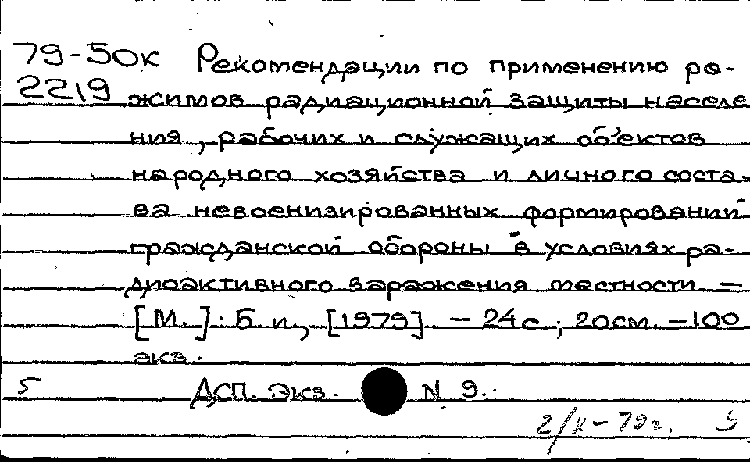 79-50к Рекомендации по применению ре-
2219 жимов радиационной защиты населе
ния, рабочих и служащих объектов
народного хозяйства и личного соста-
ва невоенизированных формирований
гражданской обороны в условиях ра-
диоактивного заражения местности. —
[М.]: Б.и., [1979]. - 24с.; 20см. - 100
экз.
5 ДСП. Экз. N 9.